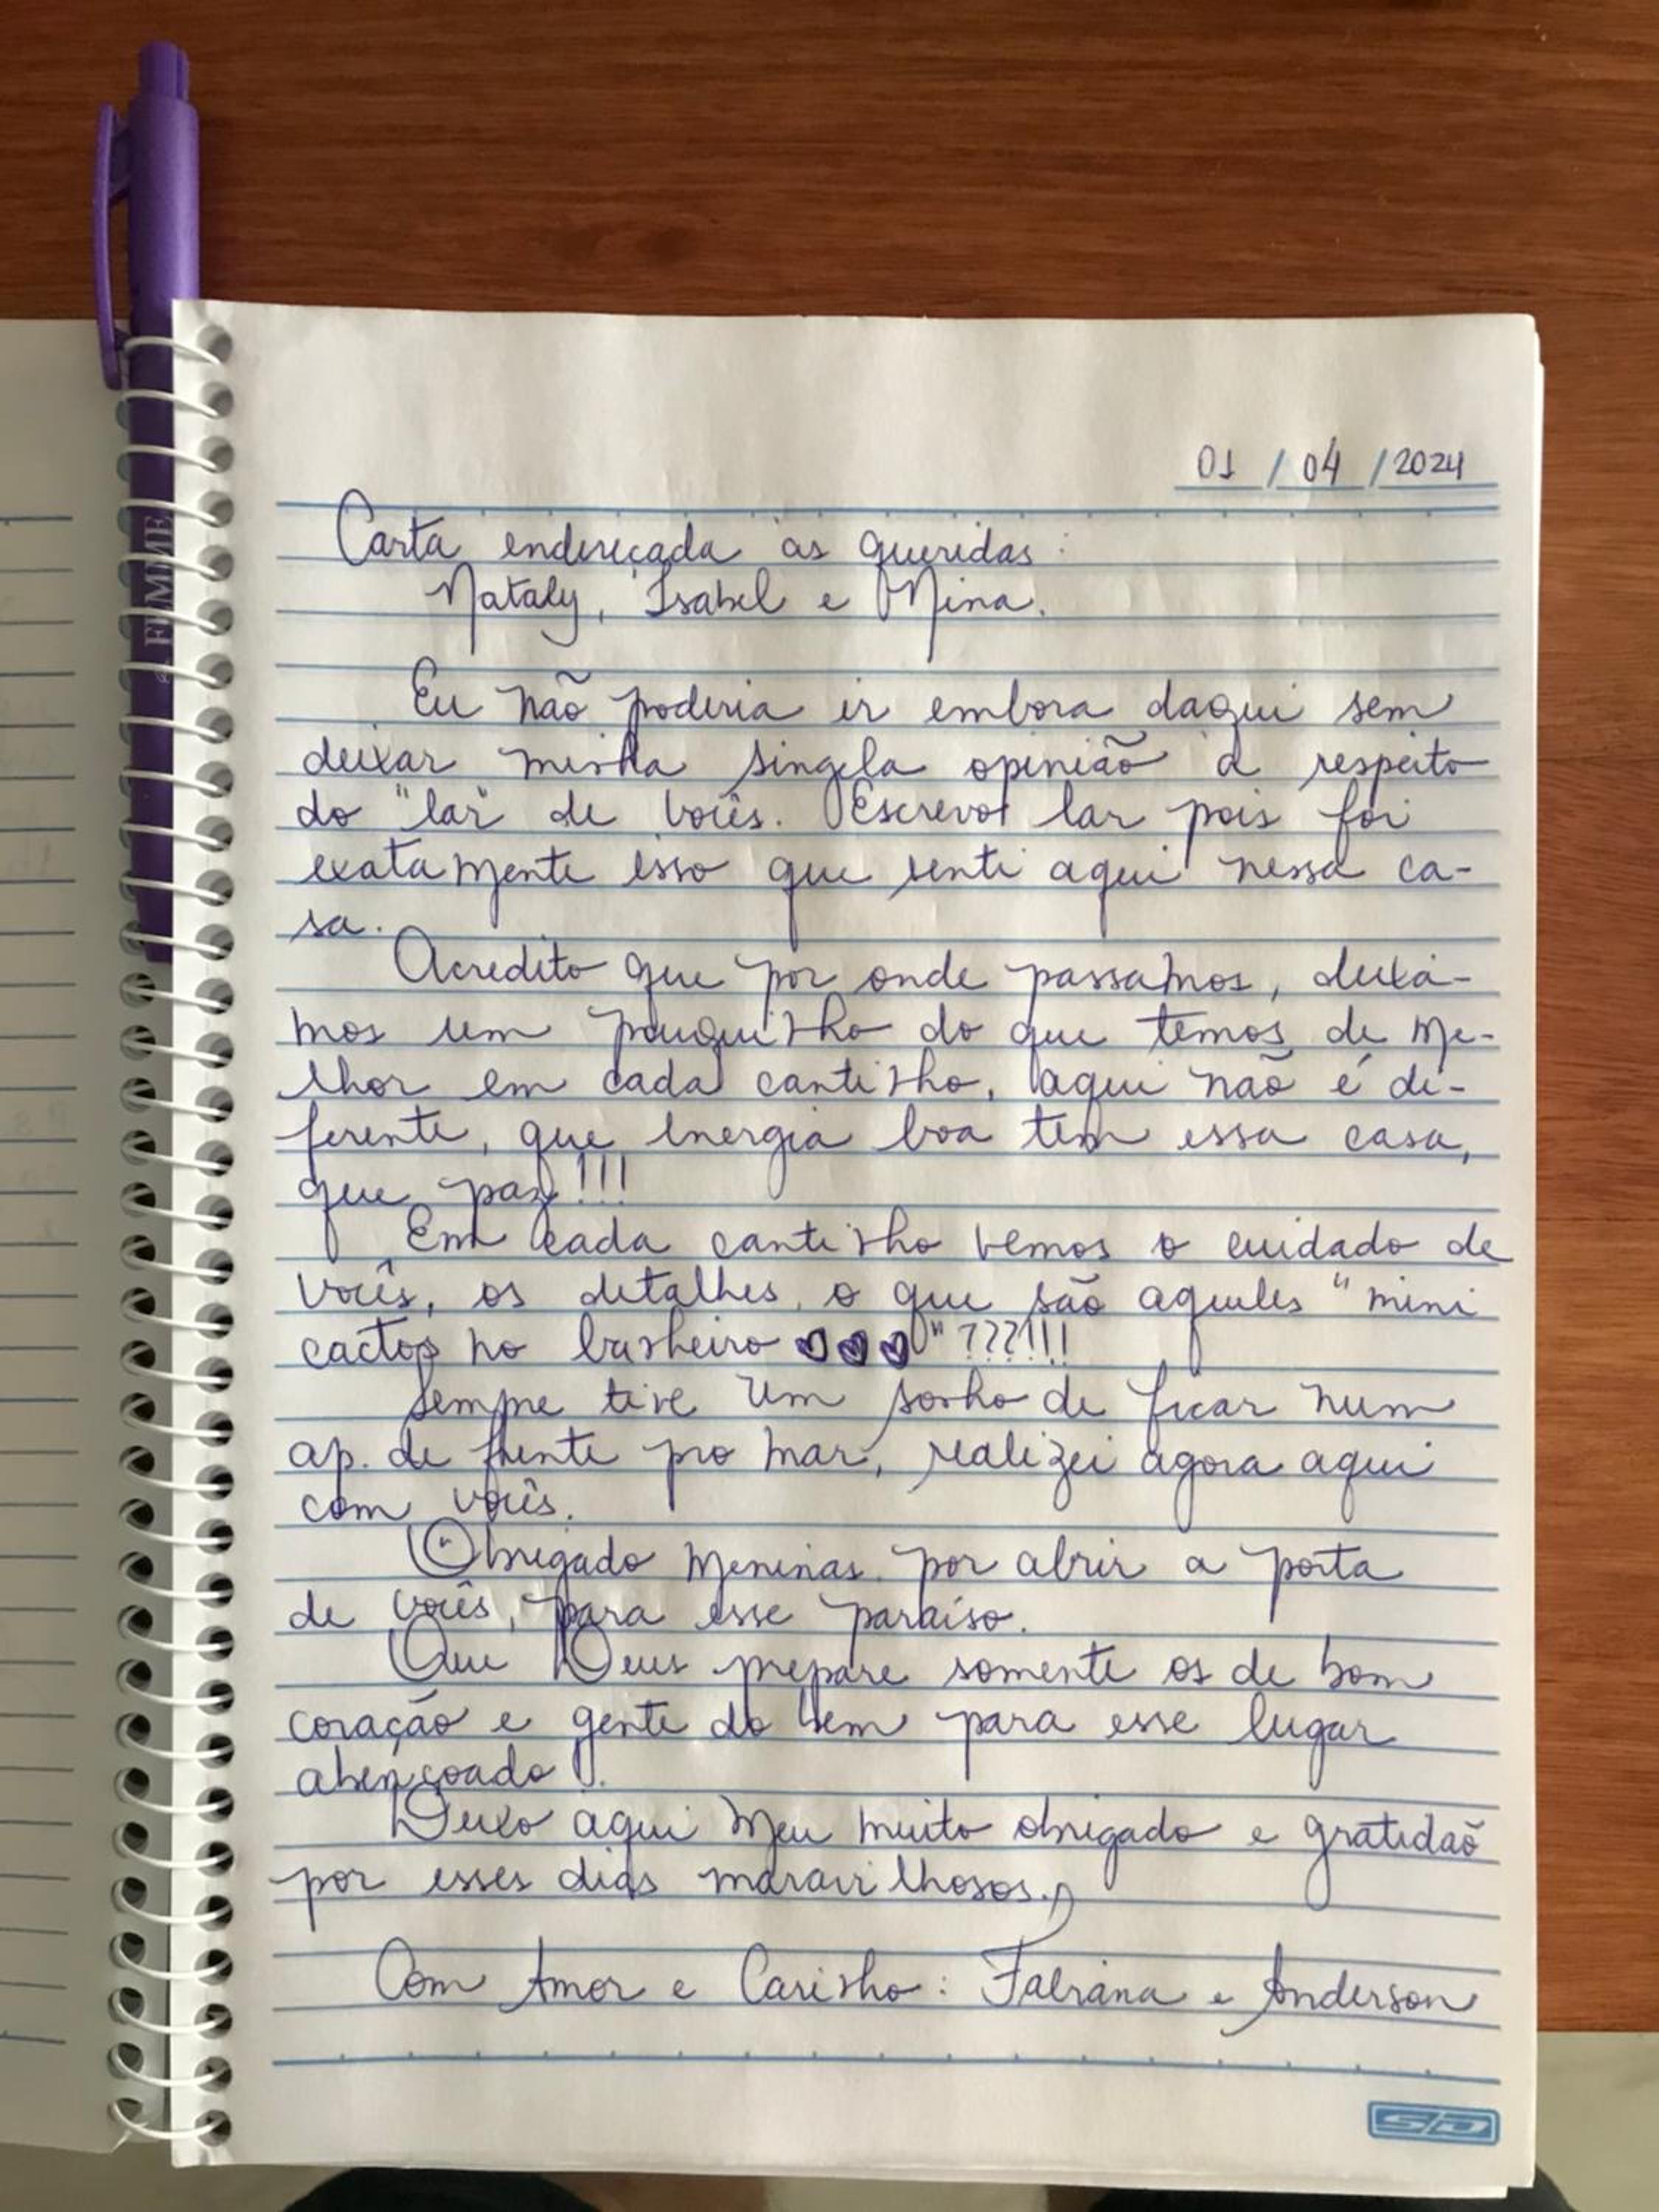 FEMME
01/04/2024
Carta endereçada as queridas:
Nataly, Isabel e Nina.
Eu não poderia ir embora daqui sem
deixar minha singela opinião a respeito
do "lar" de vocês. Escrevo lar pois foi
exatamente isso que senti aqui nessa ca-
sa.
Acredito que por onde passamos, deixa-
mos um pouquinho do que temos de me-
lhor em cada cantinho, aqui não é di-
ferente, que energia boa tem essa casa,
que paz!!!
Em cada cantinho vemos o cuidado de
vocês, os detalhes, o que são aqueles "mini
cactos no banheiro ♥♥♥" ???!!!
Sempre tive um sonho de ficar num
ap. de frente pro mar, realizei agora aqui
com vocês.
Obrigado meninas por abrir a porta
de vocês, para esse paraíso.
Que Deus prepare somente os de bom
coração e gente do bem para esse lugar
abençoado.
Deixo aqui meu muito obrigado e gratidão
por esses dias maravilhosos.
Com Amor e Carinho: Fabiana e Anderson
SD